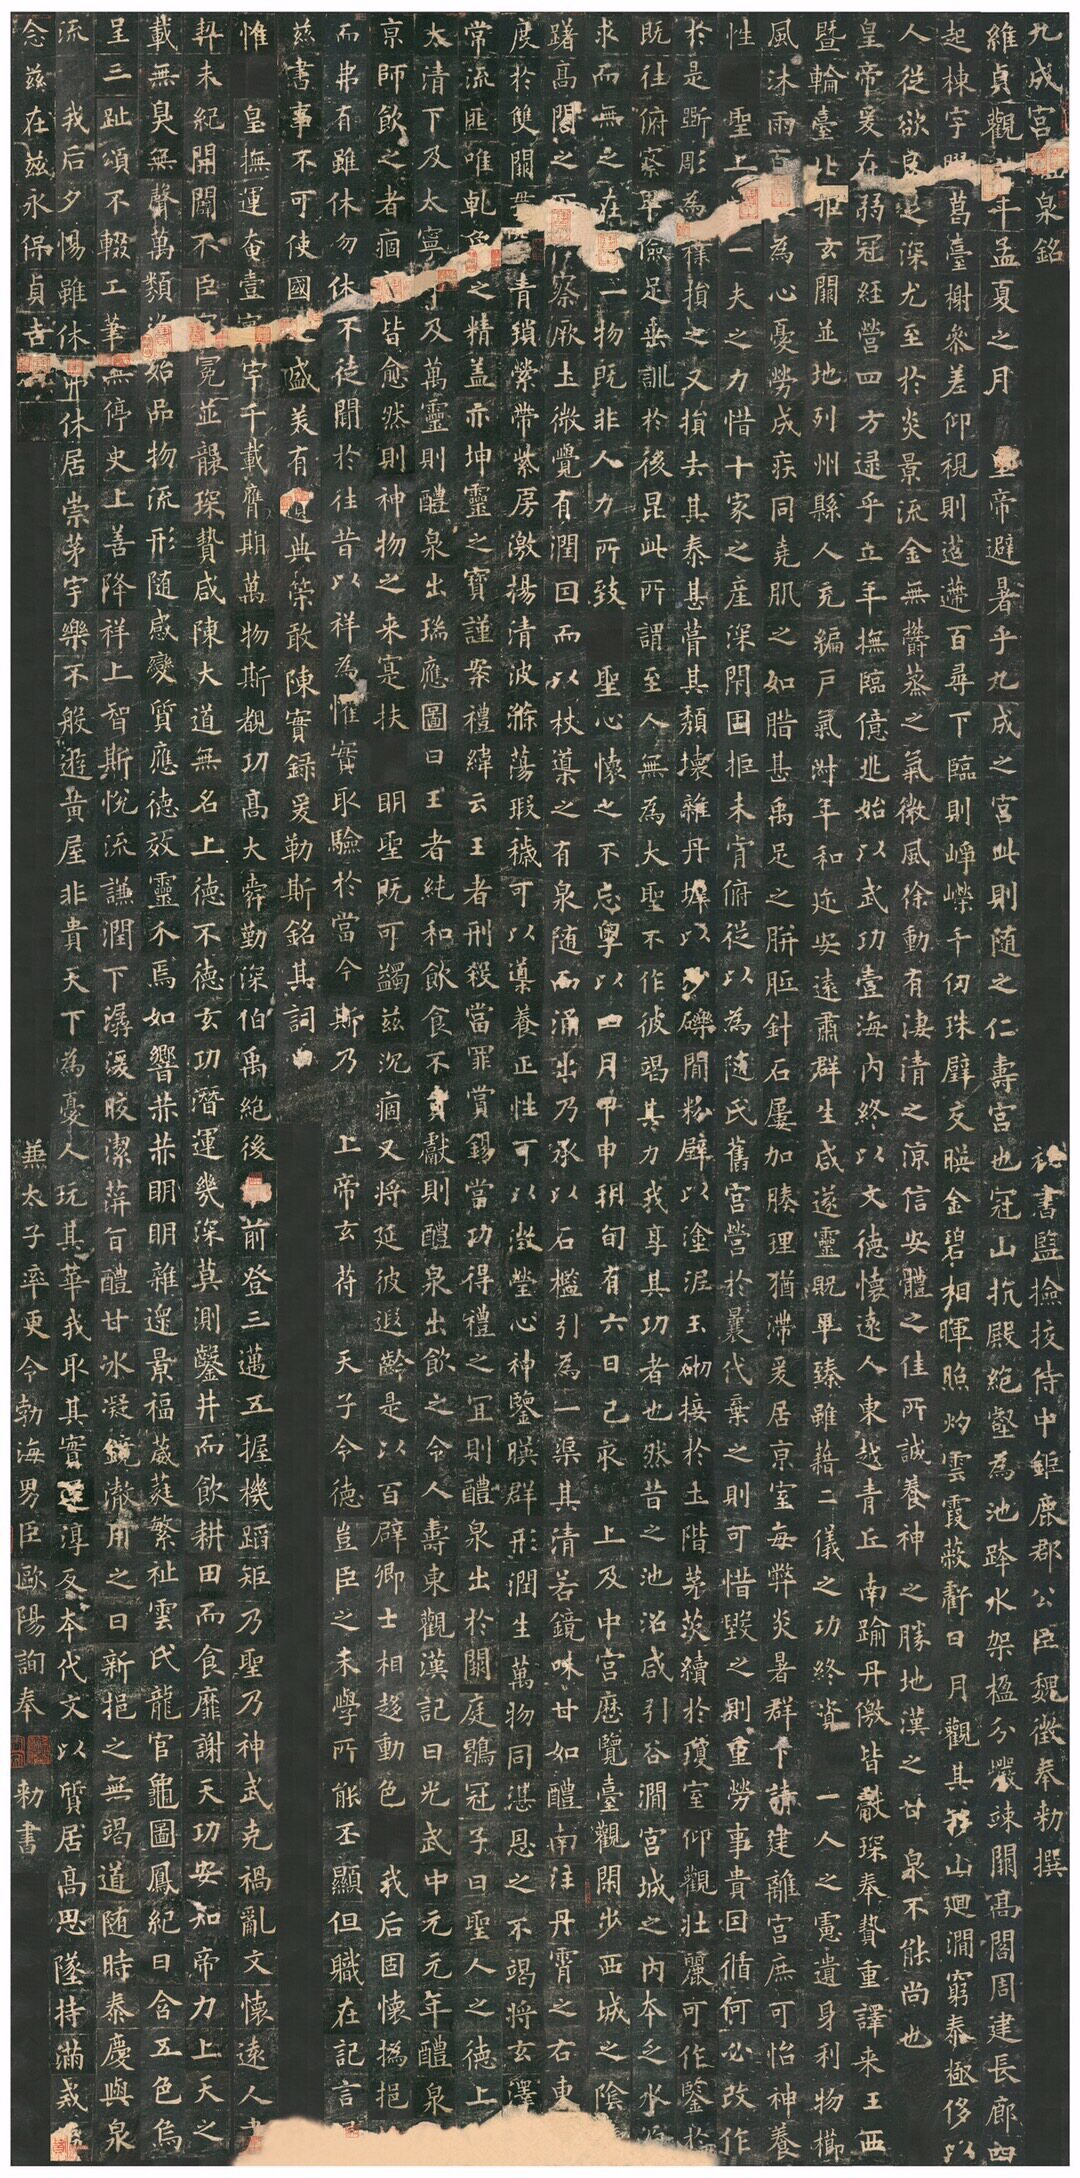 九成宮泉銘 祕書監檢挍侍中鉅鹿郡公臣魏徵奉勅撰
維貞觀年孟夏之月 皇帝避暑乎九成之宮此則隨之仁壽宮也冠山抗殿絕壑為池跨水架楹分巖竦闕高閣周建長廊四
起棟宇膠葛臺榭參差仰視則迢遰百尋下臨則崢嶸千仞珠璧交暎金碧相暉照灼雲霞蔽虧日月觀其移山廻澗窮泰極侈以
人從欲良足深尤至於炎景流金無鬱蒸之氣微風徐動有淒清之涼信安體之佳所誠養神之勝地漢之甘泉不能尚也
皇帝爰在弱冠經營四方逮乎立年撫臨億兆始以武功壹海內終以文德懷遠人東越青丘南踰丹徼皆獻琛奉贄重譯来王西
暨輪臺北拒玄闕並地列州縣人充編戶氣淑年和迩安遠肅群生咸遂靈貺畢臻雖藉二儀之功終資 一人之慮遺身利物櫛
風沐雨百為心憂勞成疾同堯肌之如腊甚禹足之胼胝針石屢加腠理猶滯爰居京室每弊炎暑群下請建離宮庶可怡神養
性 聖上一夫之力惜十家之產深閇固拒未肯俯從以為隨氏舊宮營於曩代棄之則可惜毀之則重勞事貴因循何必改作
於是斲彫為樸損之又損去其泰甚葺其頹壞雜丹墀以沙礫間粉壁以塗泥玉砌接於土階茅茨續於瓊室仰觀壯麗可作鑒於
既往俯察卑儉足垂訓於後昆此所謂至人無為大聖不作彼竭其力我享其功者也然昔之池沼咸引谷澗宮城之內本乏水源
求而無之在一物既非人力所致 聖心懷之不忘粵以四月甲申朔旬有六日己亥 上及中宮歷覽臺觀閑步西城之陰
躇高閣之察厥土微覺有潤因而以杖導之有泉隨而涌出乃承以石檻引為一渠其清若鏡味甘如醴南注丹霄之右東
度於雙闕貫青瑣縈帶紫房激揚清波滌蕩瑕穢可以導養正性可以澂瑩心神鑒暎群形潤生萬物同湛恩之不竭將玄澤
常流匪唯乾象之精蓋亦坤靈之寶謹案禮緯云王者刑殺當罪賞錫當功得禮之宜則醴泉出於闕庭鶡冠子曰聖人之德上
太清下及太寧中及萬靈則醴泉出瑞應圖曰王者純和飲食不貢獻則醴泉出飲之令人壽東觀漢記曰光武中元元年醴泉
京師飲之者痼皆愈然則神物之来寔扶 明聖既可蠲茲沉痼又將延彼遐齡是以百辟卿士相趍動色 我后固懷撝挹
而弗有雖休勿休不徒聞於往昔以祥為懼實取驗於當今斯乃 上帝玄符 天子令德豈臣之末學所能丕顯但職在記言
茲書事不可使國盛美有遺典策敢陳實錄爰勒斯銘其詞曰
惟 皇撫運奄壹寰宇千載膺期萬物斯覩功高大舜勤深伯禹絕後前登三邁五握機蹈矩乃聖乃神武克禍亂文懷遠人書
契未紀開闢不臣冠冕並襲琛贄咸陳大道無名上德不德玄功潛運幾深莫測鑿井而飲耕田而食靡謝天功安知帝力上天之
載無臭無聲萬類資始品物流形隨感變質應德效靈介焉如響赫赫明明雜遝景福葳蕤繁祉雲氏龍官龜圖鳳紀日含五色烏
呈三趾頌不輟工筆無停史上善降祥上智斯悅流謙潤下潺湲皎潔蓱旨醴甘冰凝鏡澈用之日新挹之無竭道隨時泰慶與泉
流 我后夕惕雖休弗休居崇茅宇樂不般遊黃屋非貴天下為憂人玩其華我取其實還淳反本代文以質居高思墜持滿戒溢
念茲在茲永保貞吉 兼太子率更令勃海男臣歐陽詢奉 勅書